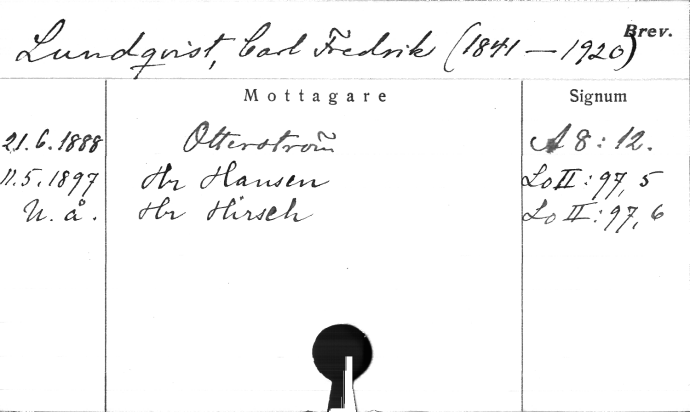 Lundqvist, Carl Fredrik (1841–1920) Brev.
Mottagare Signum
21.6.1888 Otterström A 8:12.
11.5.1897 Hr Hansen Lo II:97, 5
U. å. Hr Hirsch Lo II:97, 6